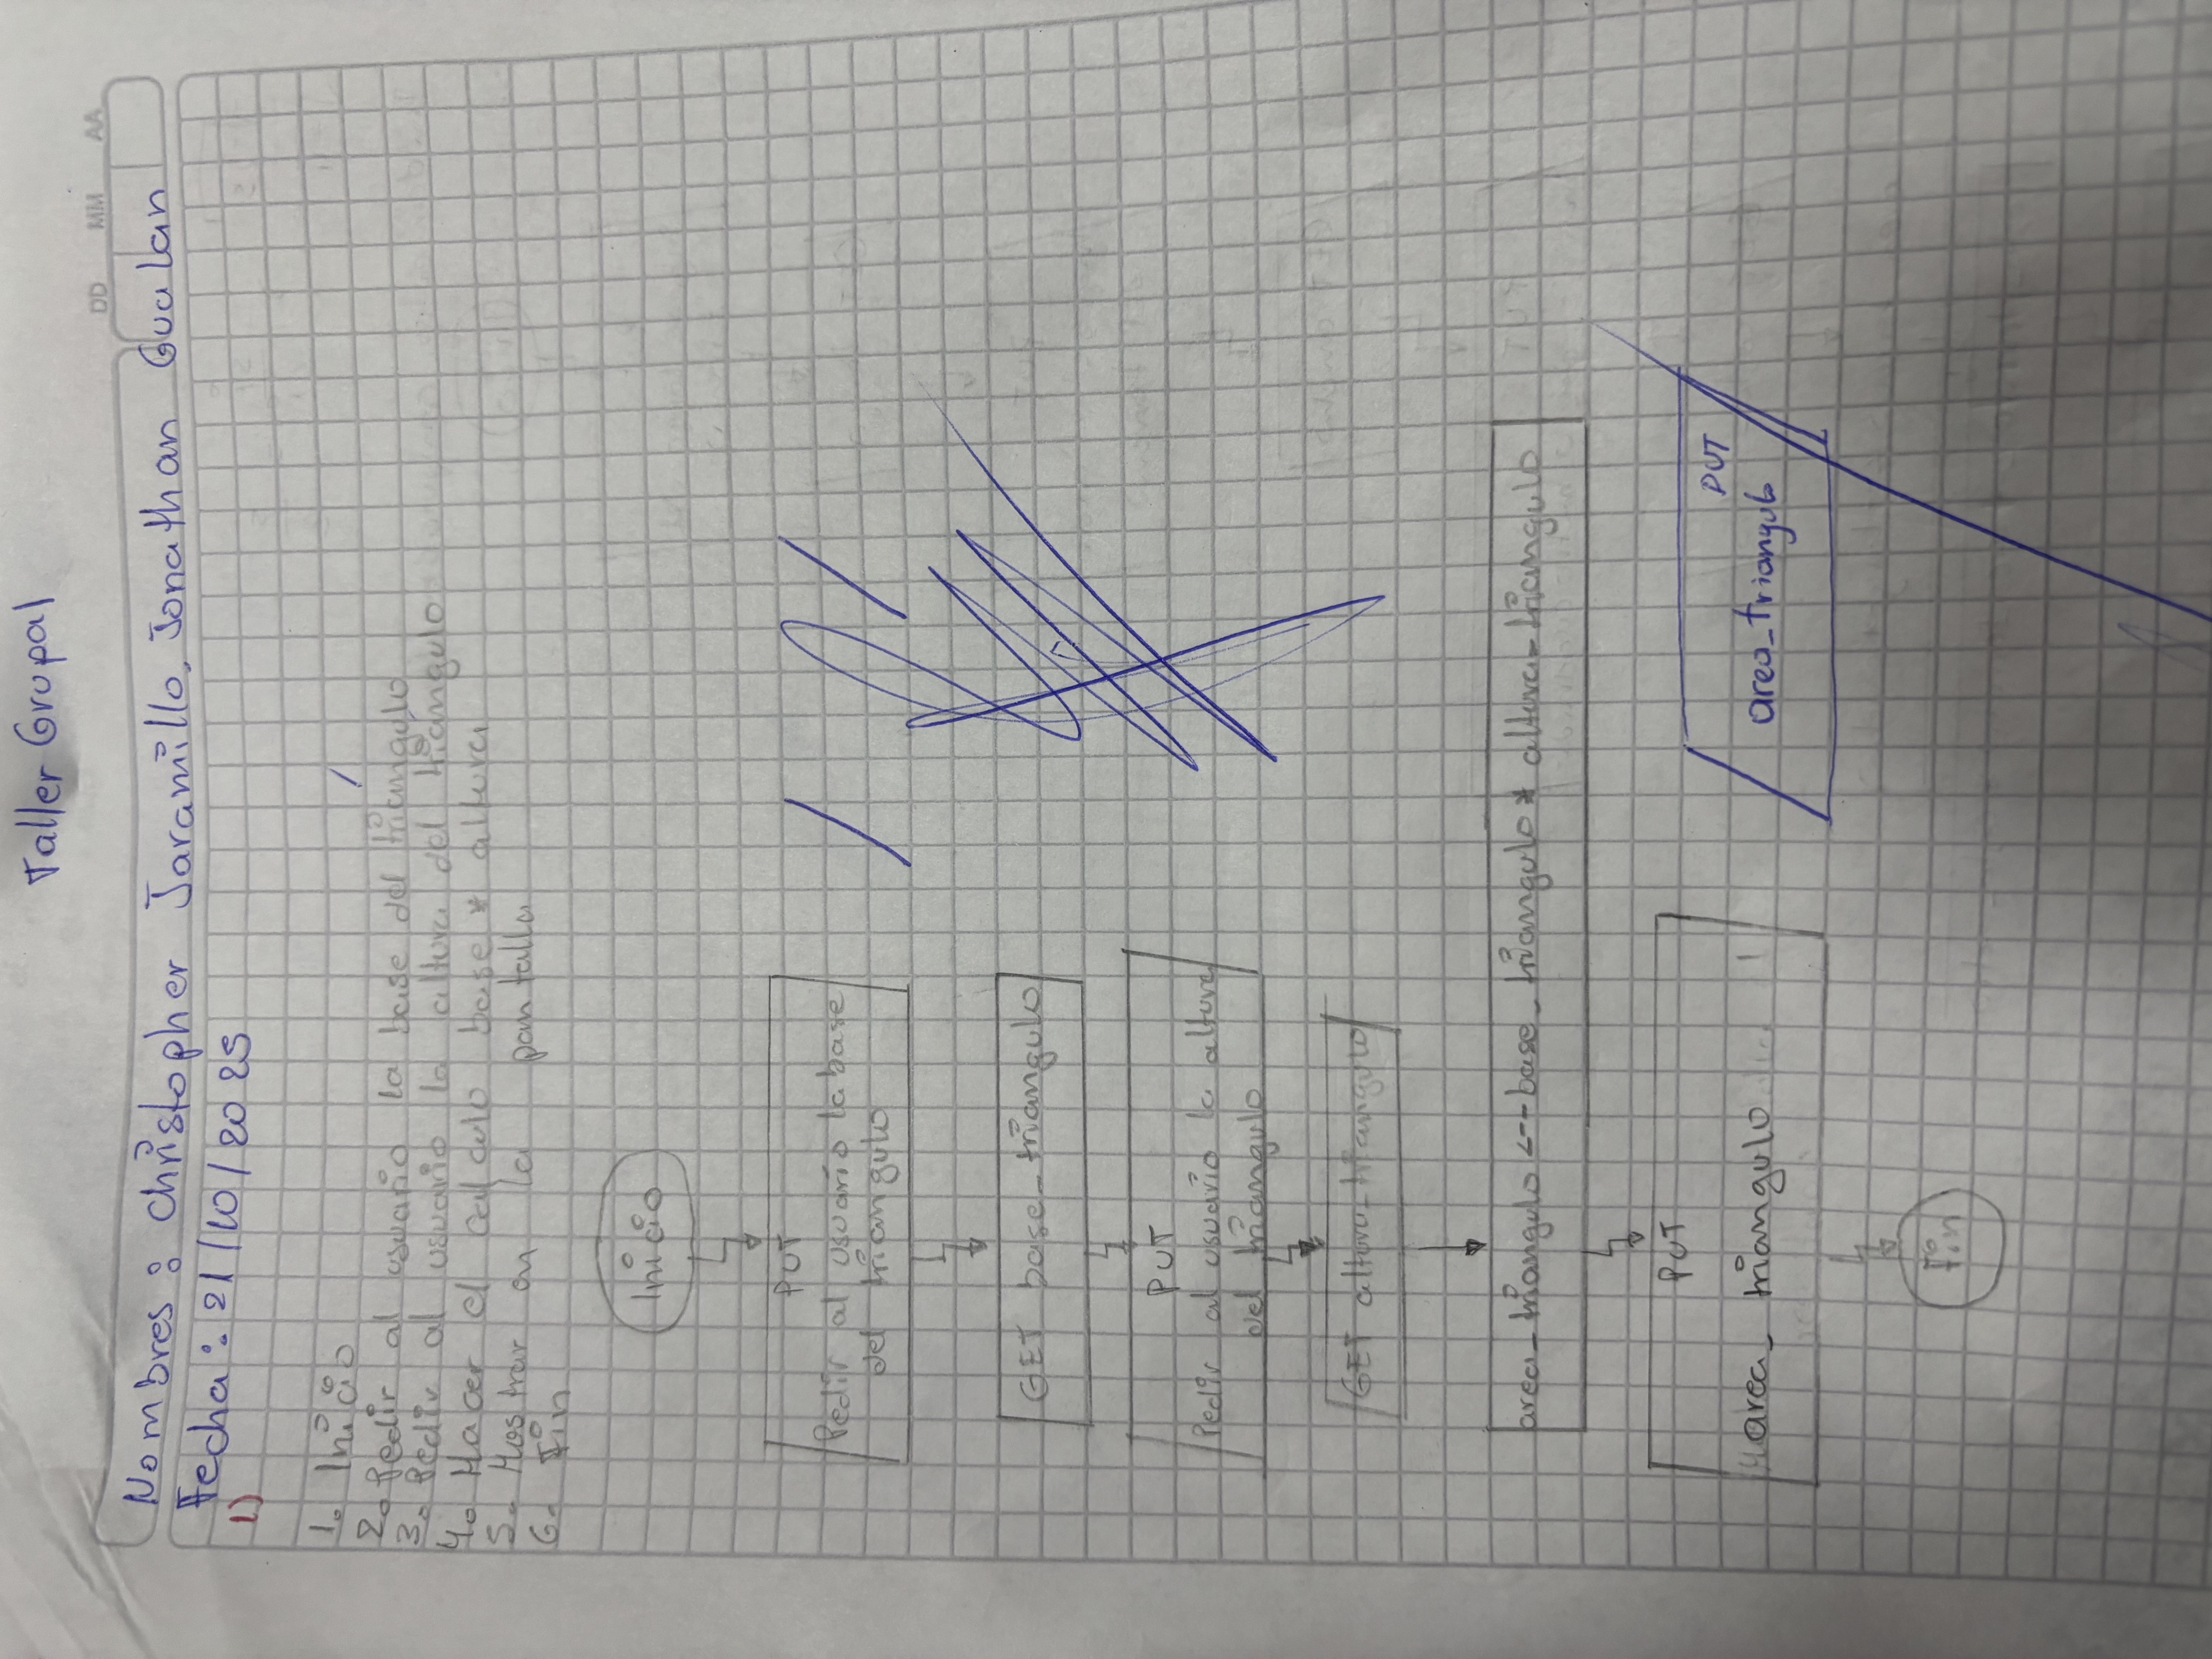 Taller Grupal
DD MM AA
Nombres: Christopher Jaramillo, Jonathan Gualan
Fecha: 21/10/2025
1)
1. Inicio
2. Pedir al usuario la base del triangulo
3. Pedir al usuario la altura del triangulo
4. Hacer el calculo base * altura
5. Mostrar en la pantalla
6. Fin
Inicio
PUT
Pedir al usuario la base
del triangulo
GET base_triangulo
PUT
Pedir al usuario la altura
del triangulo
GET altura_triangulo
area_triangulo <-- base_triangulo * altura_triangulo
PUT
area_triangulo
PUT
area_triangulo
Fin